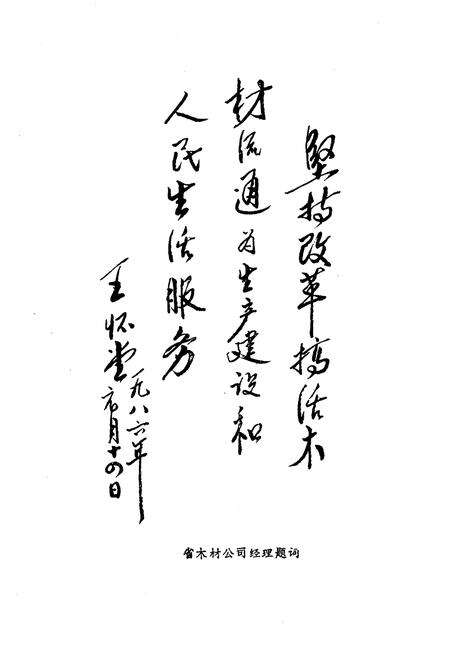 坚持改革搞活木
材流通为生产建设和
人民生活服务
王怀堂
一九八六年
月十四日
省木材公司经理题词